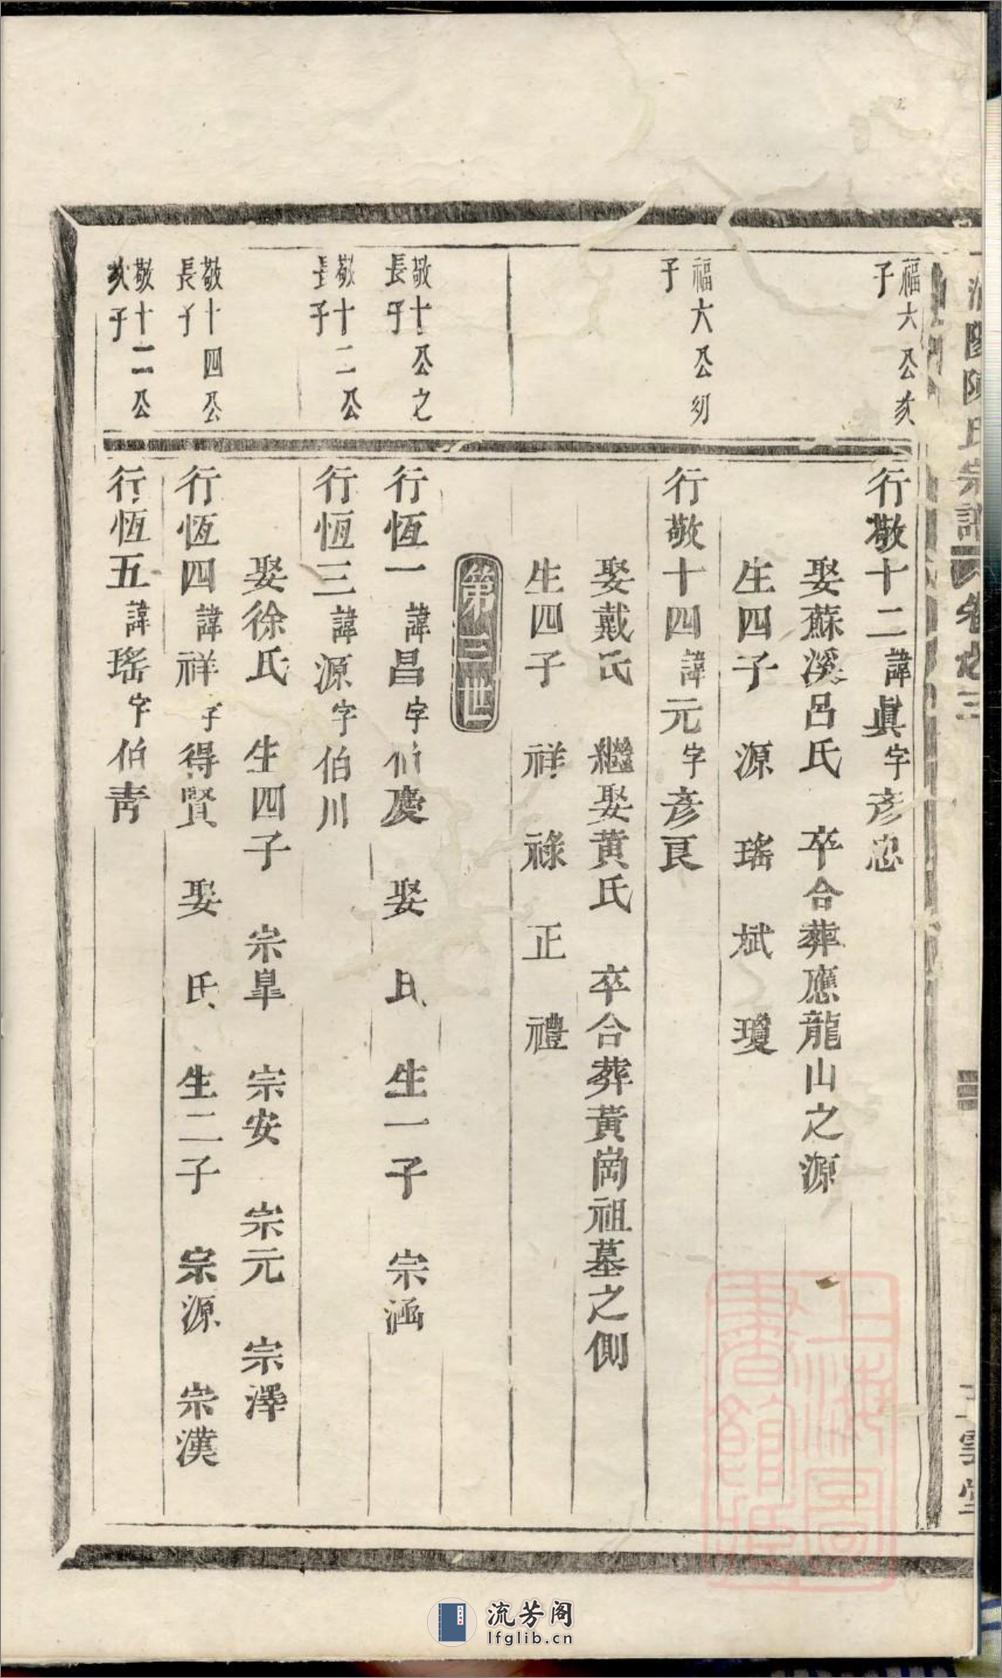 陽陳氏宗譜 卷之三
福六公次子
行敬十二諱眞字彦忠
娶蘇溪呂氏 卒合葬應龍山之源
生四子 源 瑤 斌 瓊
福六公幼子
行敬十四諱元字彦良
娶戴氏 繼娶黄氏 卒合葬黄崗祖墓之側
生四子 祥 祿 正 禮
第三世
敬十公之長子
行恆一諱昌字伯慶 娶 氏 生一子 宗涵
敬十二公長子
行恆三諱源字伯川
娶徐氏 生四子 宗臯 宗安 宗元 宗澤
敬十四公長子
行恆四諱祥字得賢 娶 氏 生二子 宗源 宗漢
敬十二公次子
行恆五諱瑤字伯靑
上海圖書館藏
流芳阁
lfglib.cn